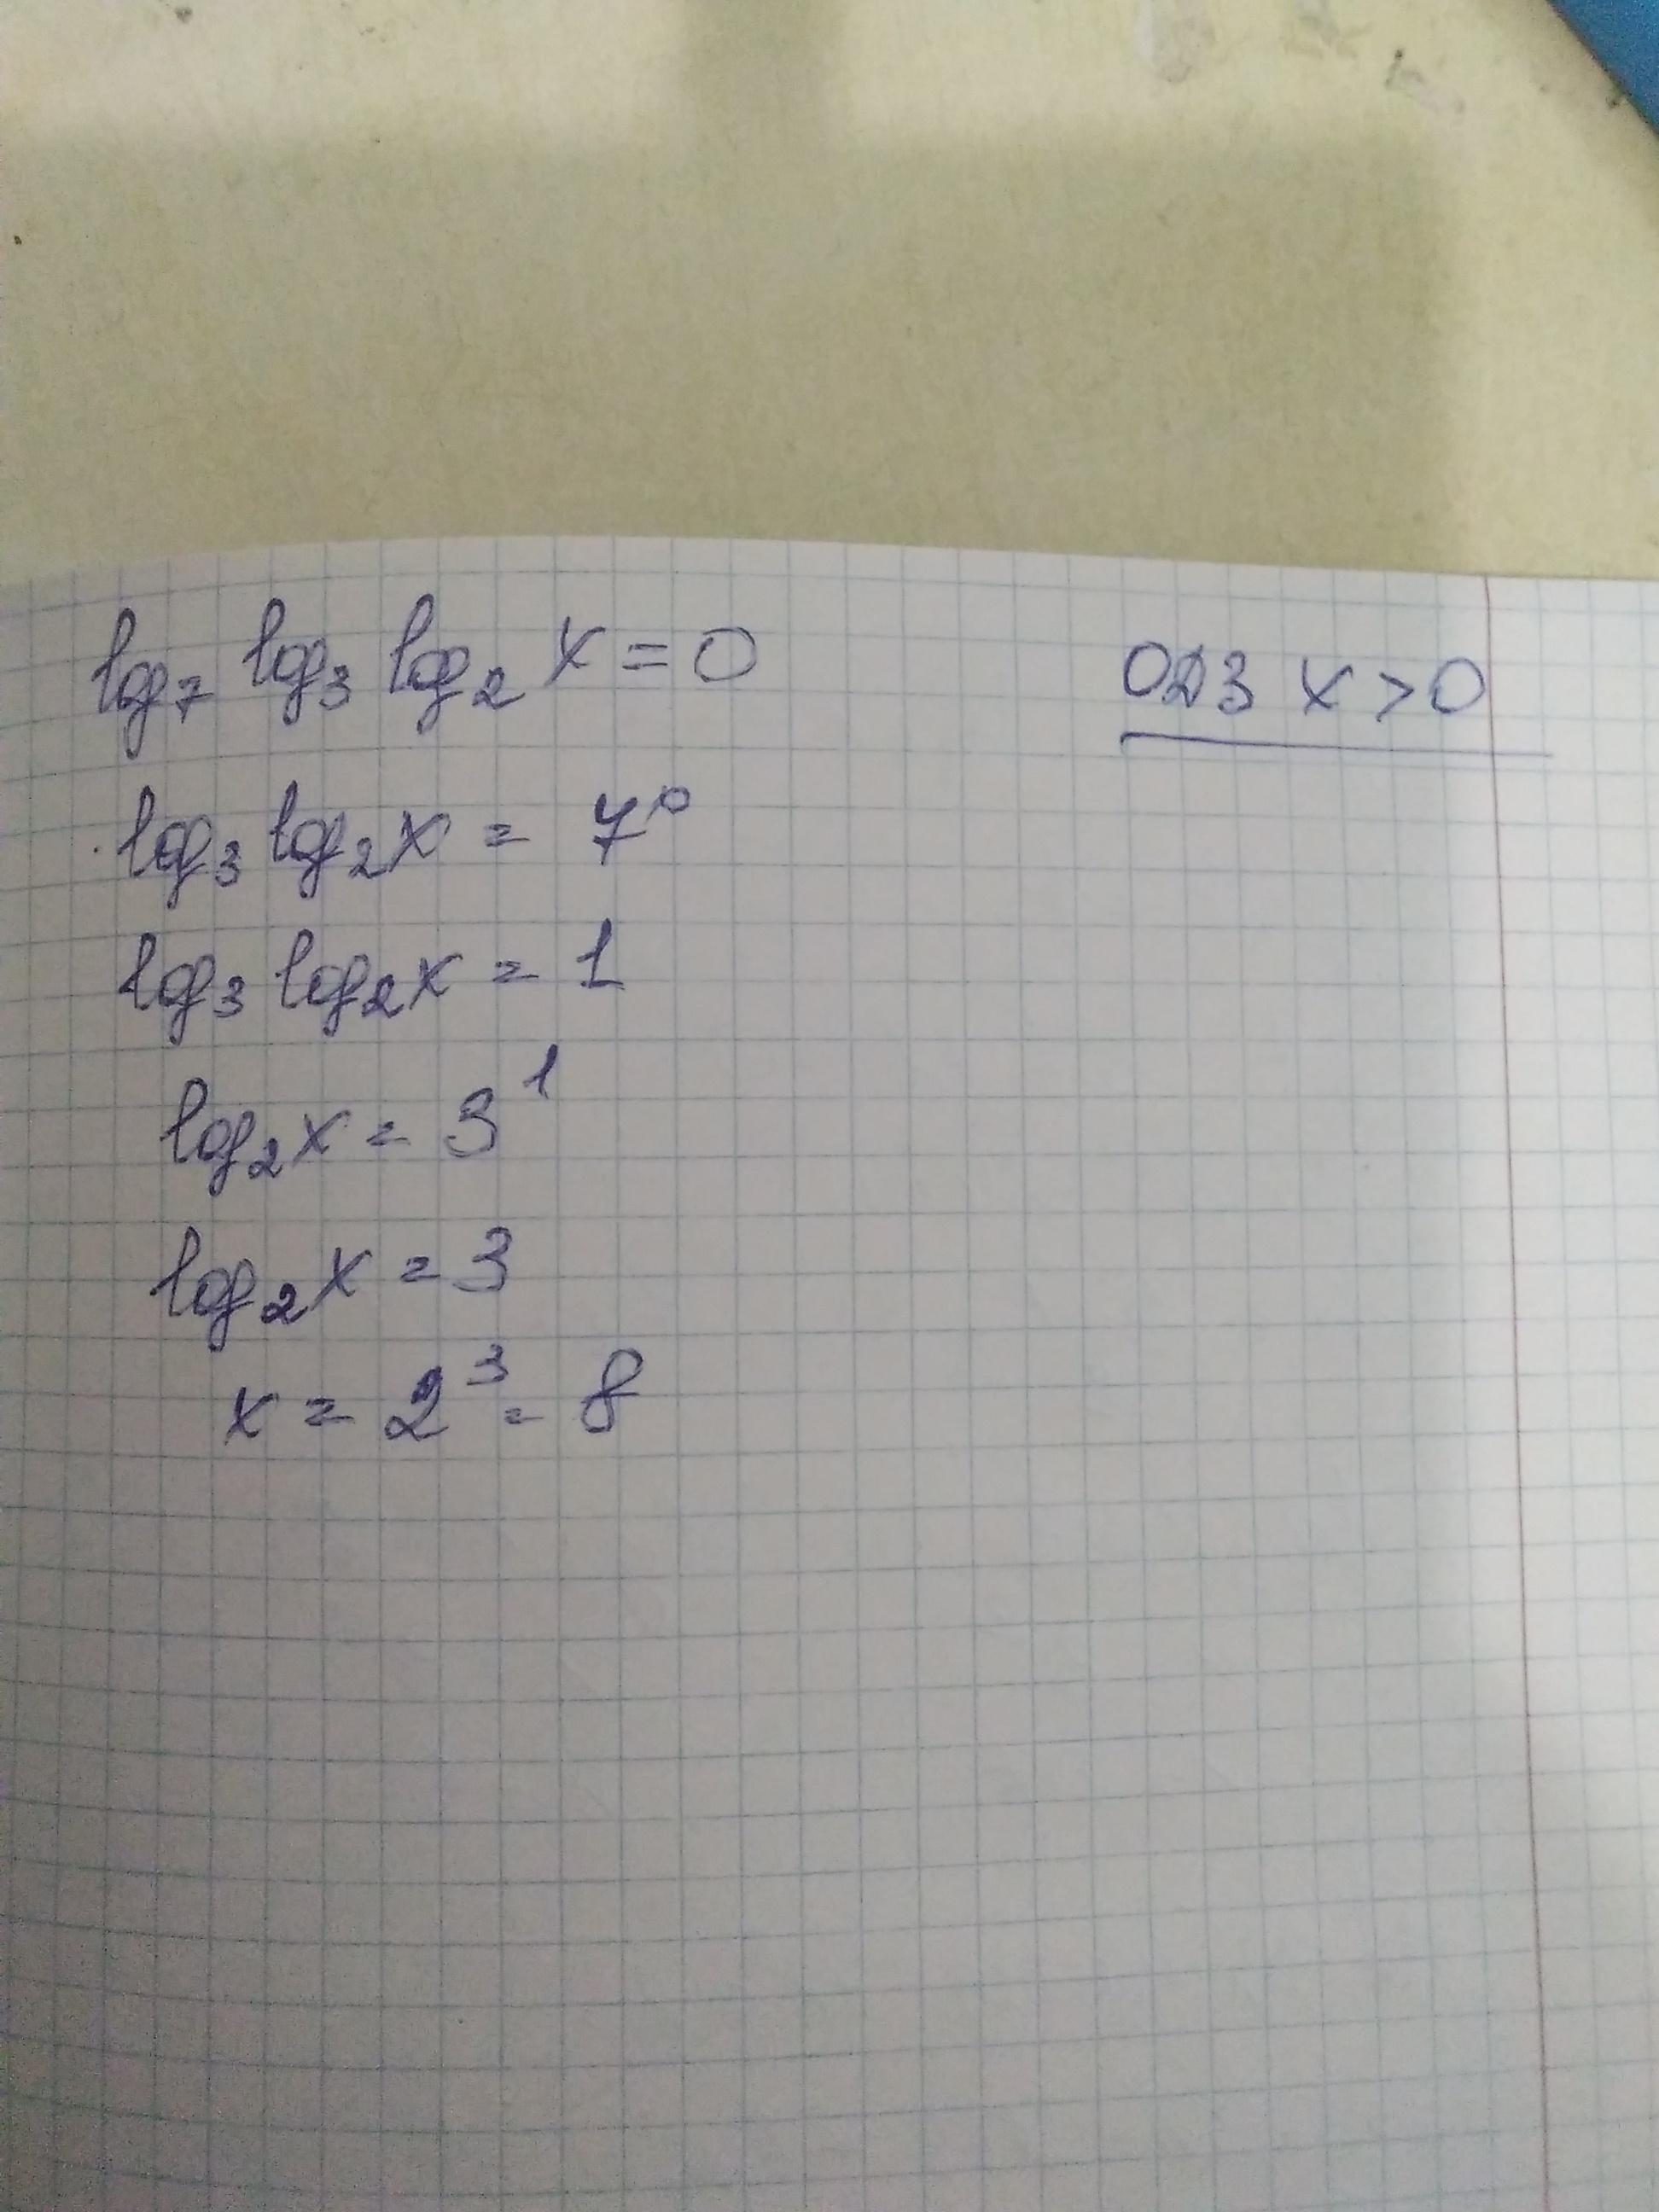 log₇ log₃ log₂ x = 0
ОДЗ x > 0
log₃ log₂ x = 7⁰
log₃ log₂ x = 1
log₂ x = 3¹
log₂ x = 3
x = 2³ = 8